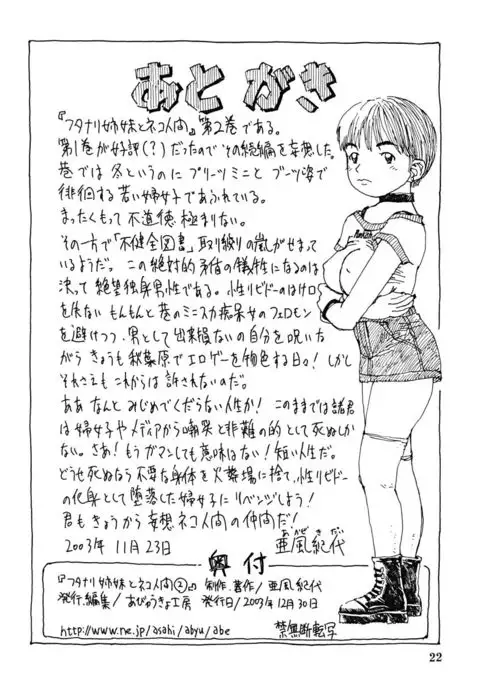 あとがき
『フタナリ姉妹とネコ人間』第2巻である。
第1巻が好評(?)だったので その続編を妄想した。
巷では 冬というのに プリーツミニと ブーツ姿で
徘徊する若い婦女子であふれている。
まったくもって 不道徳 極まりない。
その一方で「不健全図書」取り締りの嵐がせまって
いるようだ。この絶対的矛盾の犠牲になるのは
決って絶望独身男性である。性リビドーのはけ口
を失ない もんもんと巷のミニスカ痴呆女のフェロモン
を避けつつ、男として出来損ないの自分を呪いな
がら きょうも秋葉原でエロゲーを物色する日々! しかし
それさえも これからは 許されないのだ。
ああ なんと みじめでくだらない人生か! このままでは諸君
は婦女子やメディアから嘲笑と非難の的として死ぬしか
ない。さあ! もうガマンしても意味はない! 短い人生だ。
どうせ死ぬなら 不要な身体を火葬場に捨て、性リビドー
の化身として堕落した婦女子にリベンジしよう!
君も きょうから妄想ネコ人間の仲間だ!
2003年 11月23日
あびゅうきょ工房
奥付
『フタナリ姉妹とネコ人間②』
発行日/2003年12月30日
http://www.ne.jp/asahi/abyu/abe
禁無断転写
22